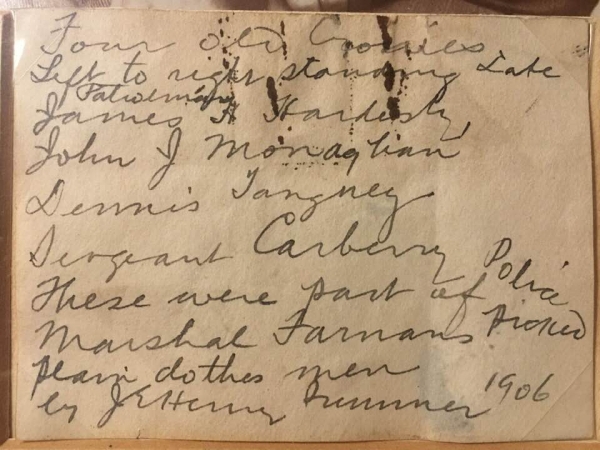 Four old Cronies
Left to right standing Late
Patrolman
James H Hardesty
John J Monaghan
Dennis Tangney
Sergeant Carberry
These were part of Police
Marshal Farnans Picked
plain clothes men
by J Henry 1906